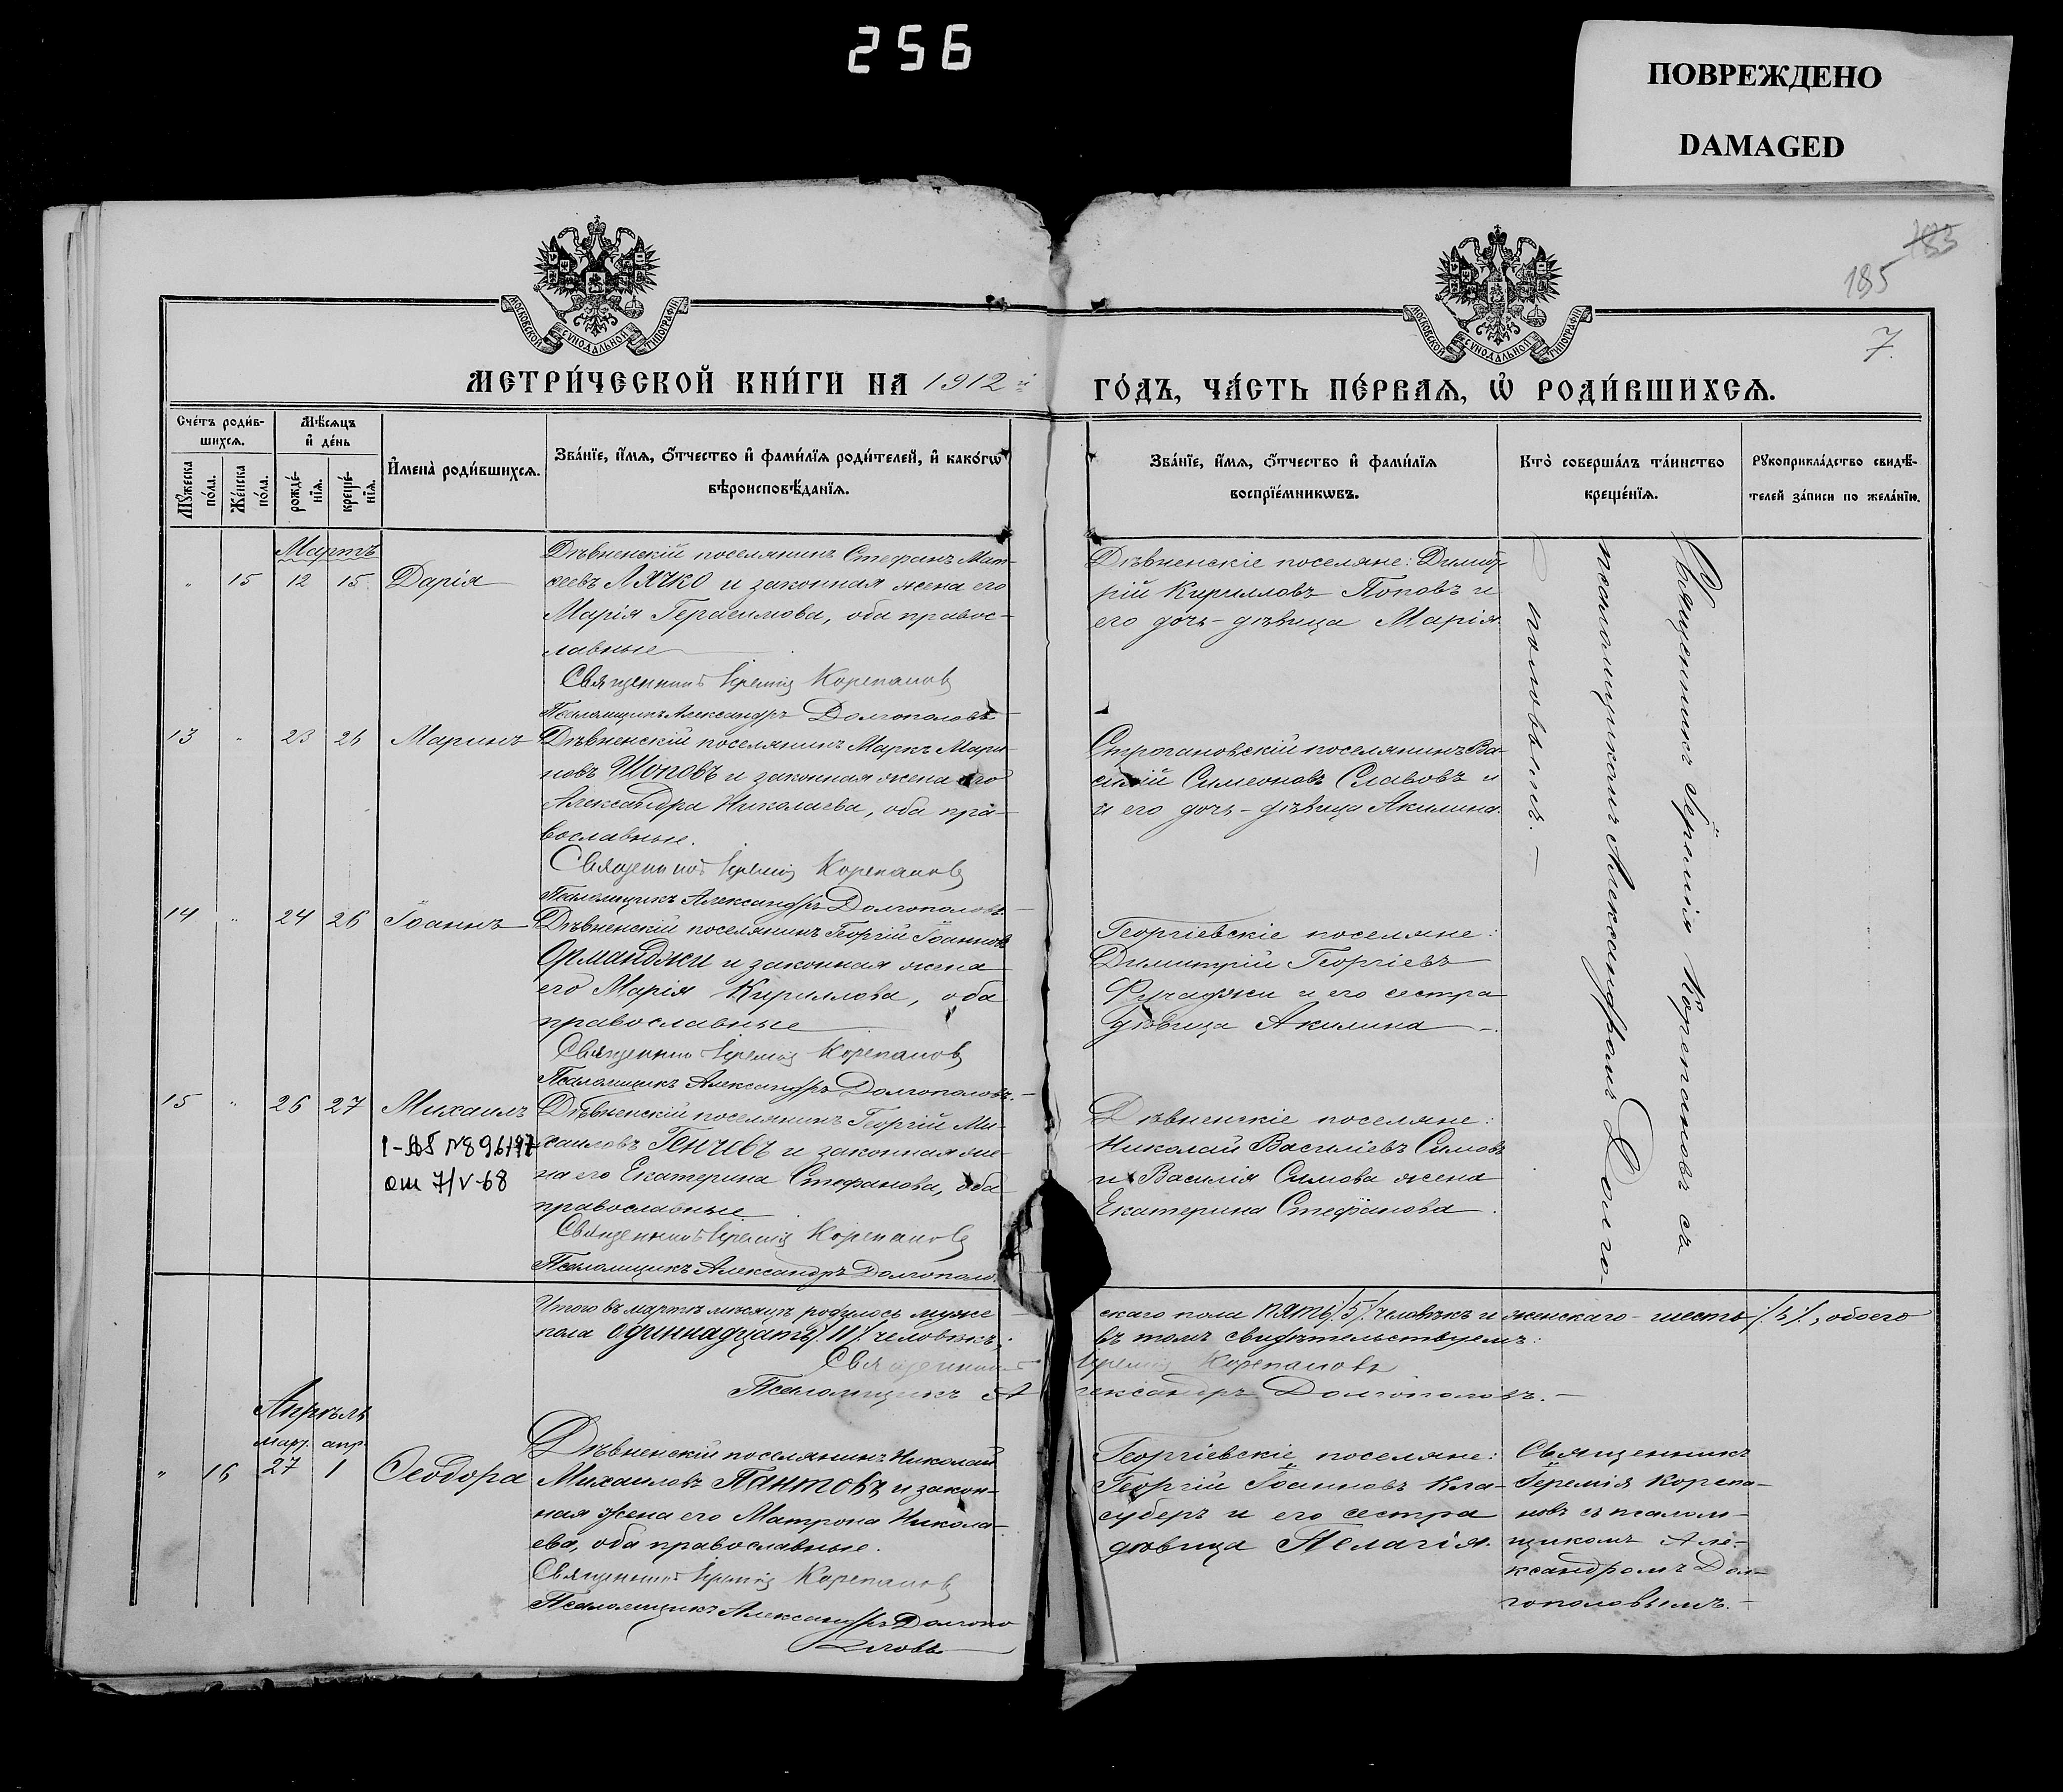 256
ПОВРЕЖДЕНО
DAMAGED
183
185
7.
МОСКОВСКОЙ СѴНОДАЛЬНОЙ ТИПОГРАФІИ
МОСКОВСКОЙ СѴНОДАЛЬНОЙ ТИПОГРАФІИ
МЕТРИ́ЧЕСКОЙ КНИ́ГИ НА 1912 й
ГО́ДЪ, ЧА́СТЬ ПЕ́РВАѦ, Ѡ҆ РОДИ́ВШИХСѦ.
Сче́тъ роди́в-
шихсѧ.
Мꙋ́жеска по́ла.
Же́нска по́ла.
Мѣ́сѧцъ
и҆ де́нь
рожде́-
нїѧ.
креще́-
нїѧ.
И҆мена̀ роди́вшихсѧ.
Зва́нїе, и҆́мѧ, ѻ҆́тчество и҆ фами́лїѧ роди́телей, и҆ како́гѡ
вѣроисповѣ́данїѧ.
Зва́нїе, и҆́мѧ, ѻ҆́тчество и҆ фами́лїѧ
воспрїе́мникѡвъ.
Кто̀ соверша́лъ та́инство
креще́нїѧ.
Рꙋкоприкла́дство свидѣ́-
телей за́писи по жела́нїю.
Мартъ
" 15 12 15 Дарія
Дѣвненскій поселянинъ Стефанъ Мат-
ѳеевъ Лячко и законная жена его
Марія Герасимова, оба правос-
лавные
Священникъ Іеремія Корепановъ
Псаломщикъ Александръ Долгополовъ
Дѣвненскіе поселяне: Димит-
рій Кирилловъ Поповъ и
его дочь-дѣвица Марія.
13 " 23 26 Маринъ
Дѣвненскій поселянинъ Маркъ Мари-
новъ Шоповъ и законная жена его
Александра Николаева, оба пра-
вославные.
Священникъ Іеремія Корепановъ
Псаломщикъ Александръ Долгополовъ.
Строгановскій поселянинъ Ва-
силій Симеоновъ Славовъ и
и его дочь-дѣвица Акилина.
14 " 24 26 Іоаннъ
Дѣвненскій поселянинъ Георгій Іоанновъ
Орманджи и законная жена
его Марія Кириллова, оба
православные
Священникъ Іеремія Корепановъ
Псаломщикъ Александръ Долгополовъ.
Георгіевскіе поселяне:
Димитрій Георгіевъ
Ручаджи и его сестра
дѣвица Акилина
15 " 26 27 Михаилъ
I-АБ №896197
от 7/V-68
Дѣвненскій поселянинъ Георгій Ми-
хаиловъ Генчевъ и законная же-
на его Екатерина Стефанова, оба
православные
Священникъ Іеремія Корепановъ
Псаломщикъ Александръ Долгополо
Дѣвненскіе поселяне:
Николай Василіевъ Симовъ
и Василія Симова жена
Екатерина Стефанова.
Священникъ Іеремія Корепановъ съ
псаломщикомъ Александромъ Долго-
половымъ.
Итого въ мартѣ мѣсяцѣ родилось муже
скаго пола пять /5/ человѣкъ и женскаго - шесть /6/, обоего
пола одиннадцать /11/ человѣкъ;
въ томъ свидѣтельствуемъ:
Священник Іеремія Корепановъ
Псаломщикъ Александръ Долгополовъ.
Апрѣль
март. апр.
" 16 27 1 Ѳеодора
Дѣвненскій поселянинъ Николай
Михаиловъ Пантовъ и закон-
ная жена его Матрона Никола-
ева, оба православные.
Священникъ Іеремія Корепановъ
Псаломщикъ Александръ Долгопо
ловъ
Георгіевскіе поселяне:
Георгій Іоанновъ Кла-
суберъ и его сестра
дѣвица Пелагія.
Священникъ
Іеремія Корепа-
новъ съ псалом-
щикомъ Але-
ксандромъ Дол-
гополовымъ.